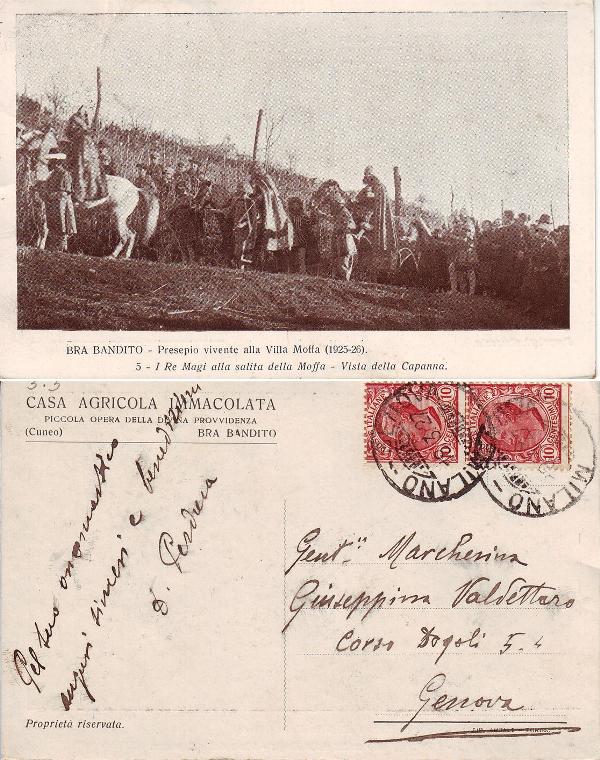 BRA BANDITO - Presepio vivente alla Villa Moffa (1925-26).
5 - I Re Magi alla salita della Moffa - Vista della Capanna.
CASA AGRICOLA IMMACOLATA
PICCOLA OPERA DELLA DIVINA PROVVIDENZA
(Cuneo) BRA BANDITO
Pel suo onomastico
auguri sinceri e benedizioni
D. Perduca
10 10
MILANO
MILANO
Gent.
Marchesina
Giuseppina Valdettaro
Corso Dogali 5.4
Genova
Proprietà riservata.